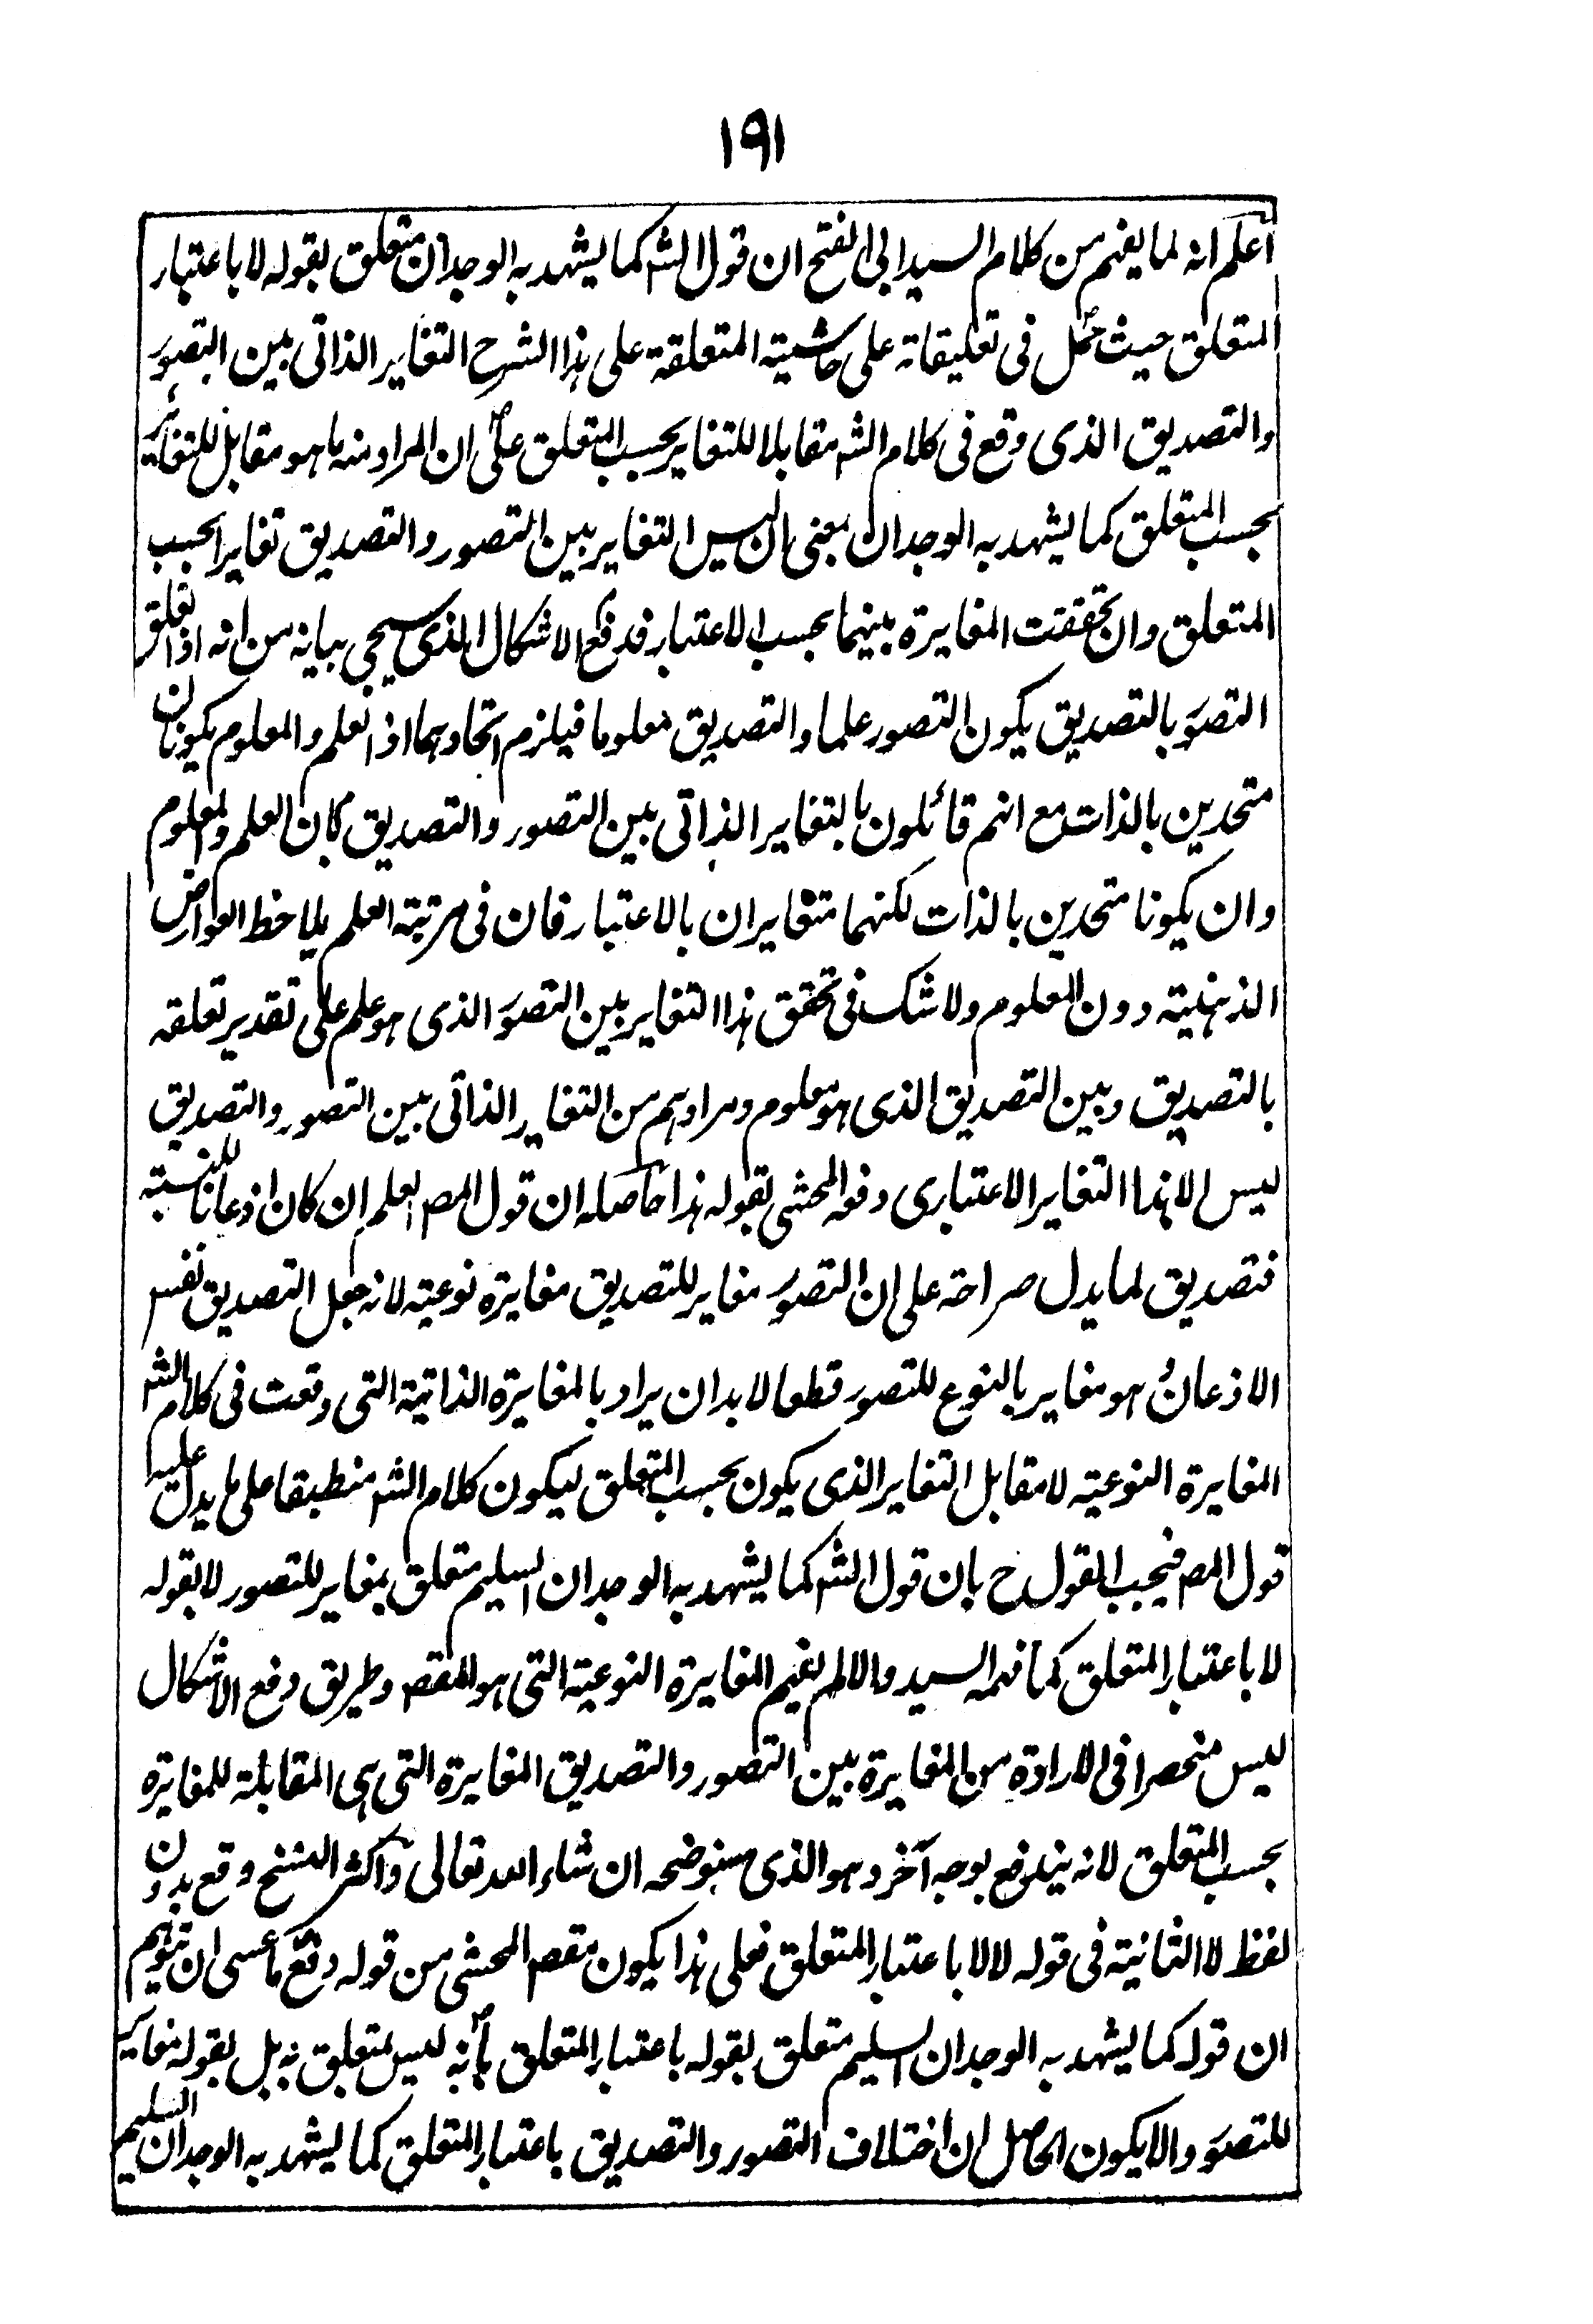 ١٩١
اعلم انه لما يفهم من كلام السيد ابى الفتح ان قول الشم كما يشهد به الوجدان متعلق بقوله لا باعتبار
المتعلق حيث حمل فى تعليقاته على حاشيته المتعلقة على هذا الشرح التغاير الذاتى بين التصور
والتصديق الذى وقع فى كلام الشم مقابلا للتغاير بحسب المتعلق على ان المراد منه ما هو مقابل للتغاير
بحسب المتعلق كما يشهد به الوجدان بمعنى ان ليس التغاير بين التصور والتصديق تغايرا بحسب
المتعلق وان تحققت المغايرة بينهما بحسب الاعتبار فدفع الاشكال الذى سيجى بيانه من انه اذا تعلق
التصور بالتصديق يكون التصور علما والتصديق معلوما فيلزم اتحادهما اذ العلم والمعلوم يكونان
متحدين بالذات مع انهم قائلون بالتغاير الذاتى بين التصور والتصديق كان العلم والمعلوم
وان يكونا متحدين بالذات لكنهما متغايران بالاعتبار فان فى مرتبة العلم يلاحظ العوارض
الذهنية دون المعلوم ولا شك فى تحقق هذا التغاير بين التصور الذى هو علم على تقدير تعلقه
بالتصديق وبين التصديق الذى هو معلوم ومرادهم من التغاير الذاتى بين التصور والتصديق
ليس الا هذا التغاير الاعتبارى دفعه المحشى بقوله هذا حاصله ان قول المص العلم ان كان اذعانا للنسبة
فتصديق لما يدل صراحة على ان التصور مغاير للتصديق مغايرة نوعية لانه جعل التصديق نفس
الاذعان و هو مغاير بالنوع للتصور قطعا لا بد ان يراد بالمغايرة الذاتية التى وقعت فى كلام الشم
المغايرة النوعية لا مقابل التغاير الذى يكون بحسب المتعلق ليكون كلام الشم منطبقا على ما يدل عليه
قول المص فيجب القول ح بان قول الشم كما يشهد به الوجدان السليم متعلق بمغاير للتصور لا بقوله
لا باعتبار المتعلق كما فهمه السيد والا لم يفهم المغايرة النوعية التى هو المقص وطريق دفع الاشكال
ليس منحصرا فى الارادة من المغايرة بين التصور والتصديق المغايرة التى هى المقابلة للمغايرة
بحسب المتعلق لانه يندفع بوجه آخر وهو الذى سنوضحه ان شاء الله تعالى واكثر النسخ وقع بدون
لفظ لا الثانية فى قوله لا لا باعتبار المتعلق فعلى هذا يكون مقص المحشى من قوله دفع ما عسى ان يتوهم
ان قوله كما يشهد به الوجدان السليم متعلق بقوله باعتبار المتعلق بأنه ليس بمتعلق به بل بقوله مغاير
للتصور والا يكون الحاصل ان اختلاف التصور والتصديق باعتبار المتعلق كما يشهد به الوجدان السليم